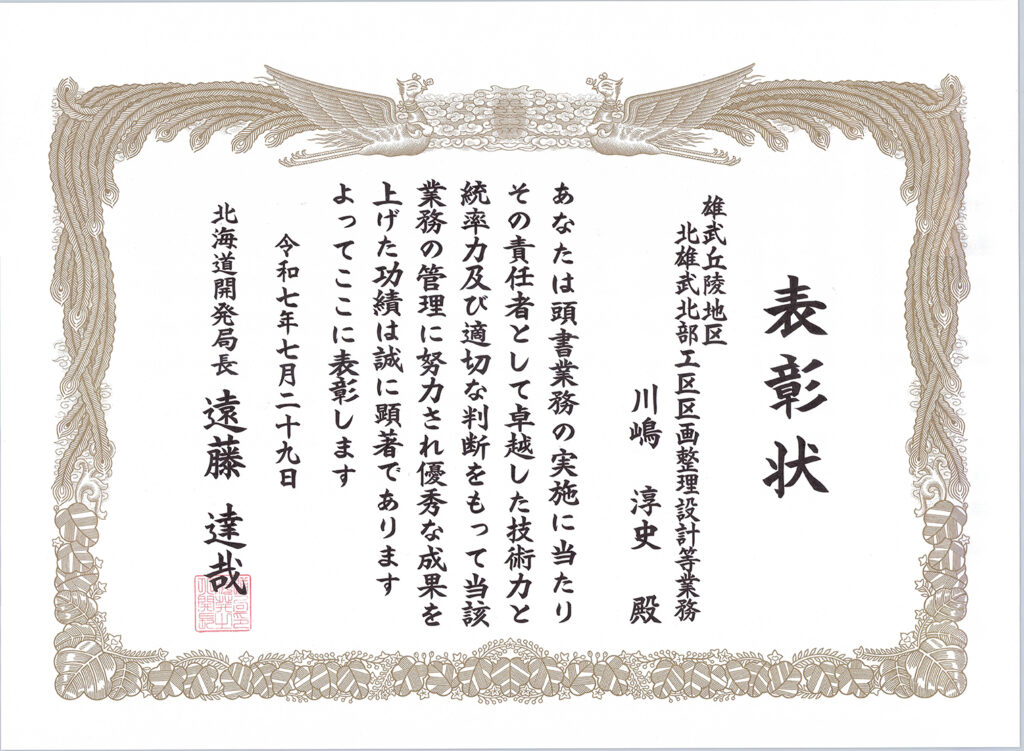 表彰状
雄武丘陵地区
北雄武北部工区区画整理設計等業務
川嶋 淳史 殿
あなたは頭書業務の実施に当たり
その責任者として卓越した技術力と
統率力及び適切な判断をもって当該
業務の管理に努力され優秀な成果を
上げた功績は誠に顕著であります
よってここに表彰します
令和七年七月二十九日
北海道開発局長 遠藤 達哉